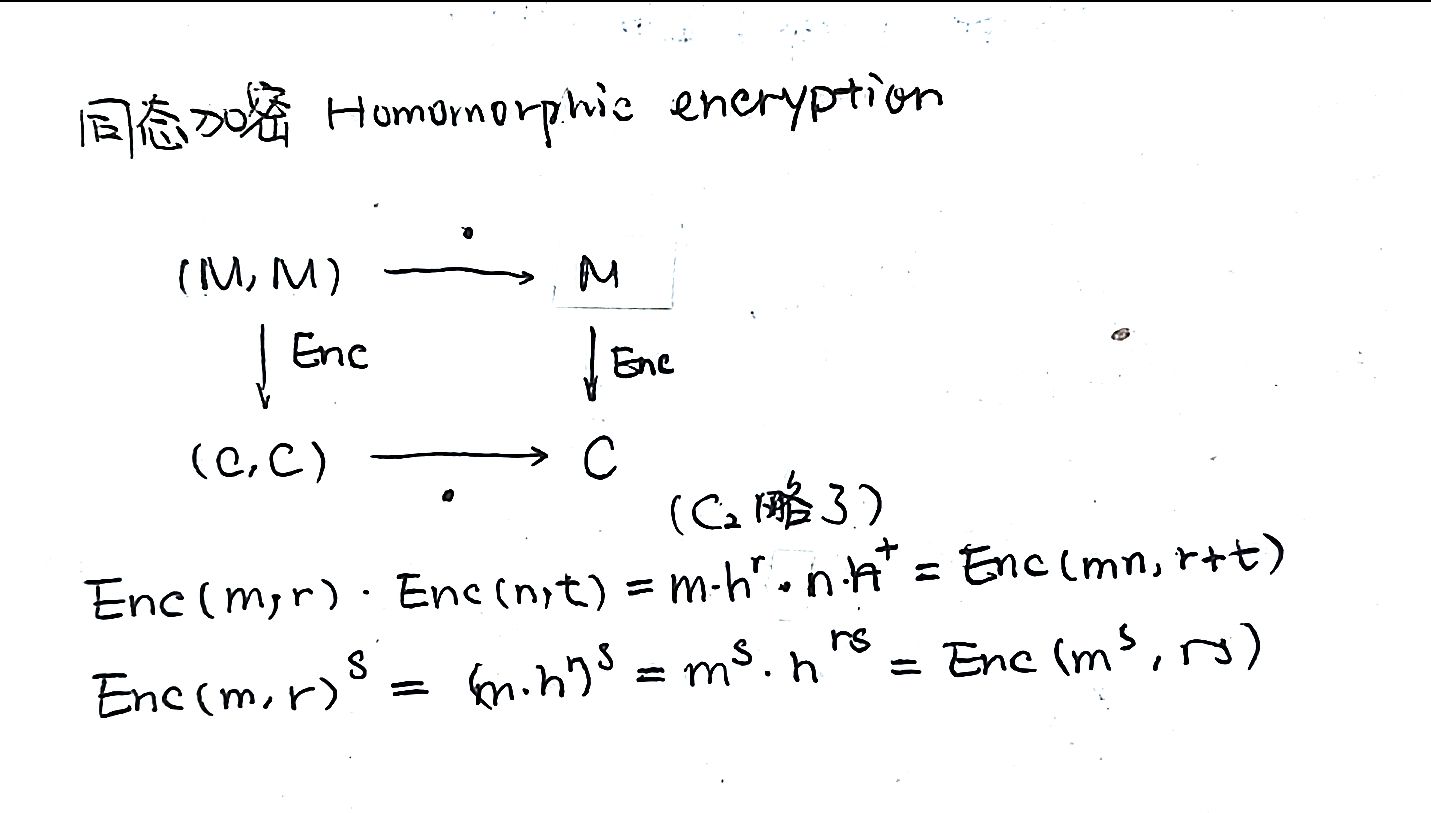 同态加密 Homomorphic encryption
(M, M) ⟶ M
·
↓ Enc ↓ Enc
(C, C) ⟶ C
·
(C₂略了)
Enc(m,r) · Enc(n,t) = m·hʳ · n·hᵗ = Enc(mn, r+t)
Enc(m,r)ˢ = (m·hʳ)ˢ = mˢ · hʳˢ = Enc(mˢ, rs)